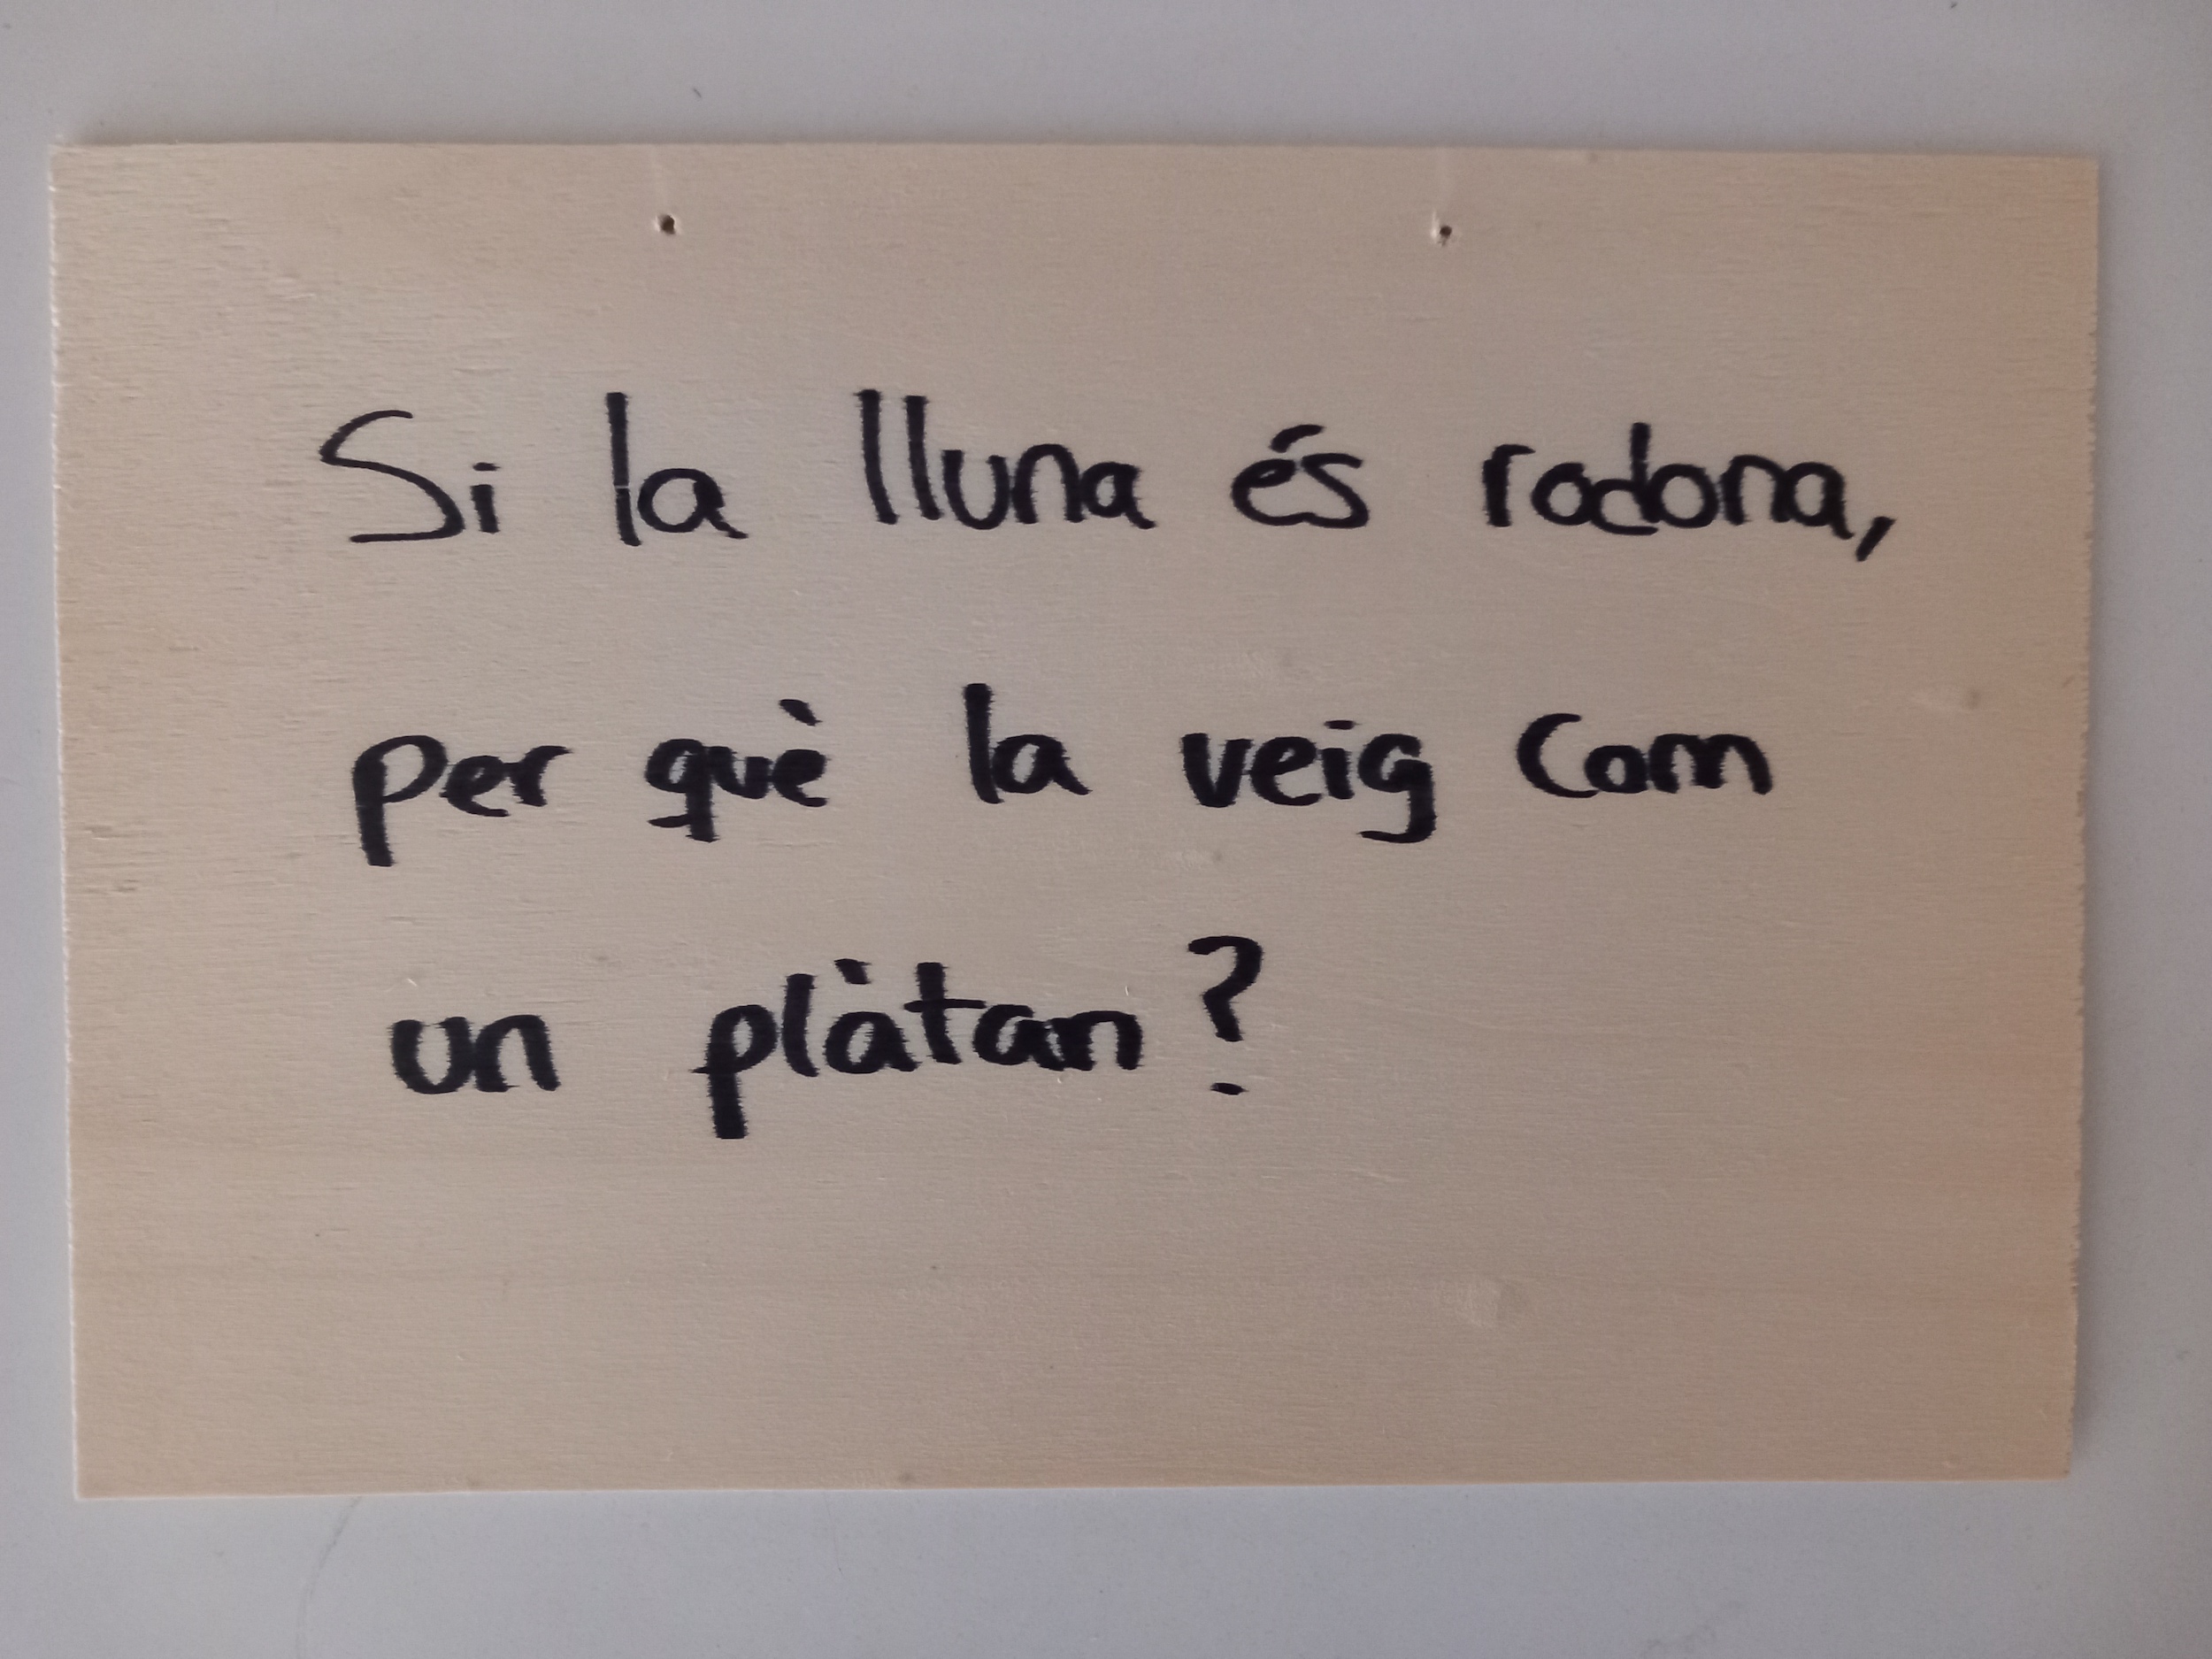 Si la lluna és rodona,
per què la veig com
un plàtan?